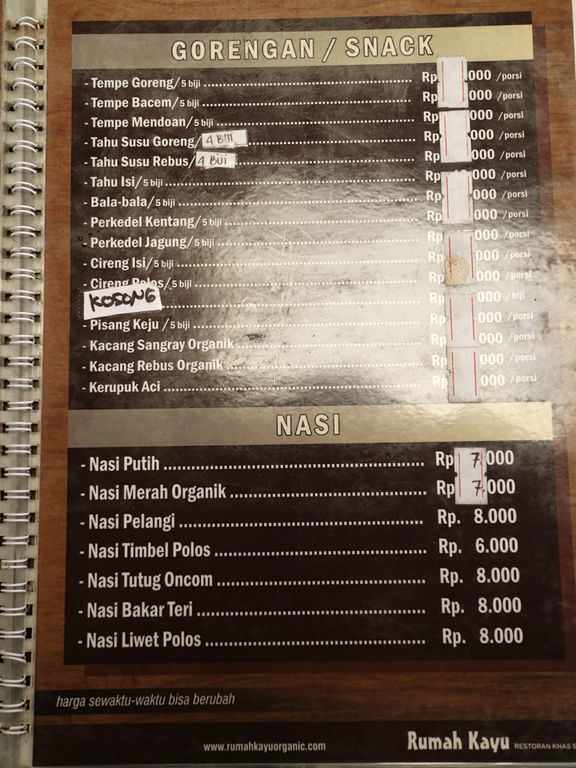 GORENGAN / SNACK
- Tempe Goreng/5 biji ........ Rp 000 /porsi
- Tempe Bacem/5 biji ........ Rp 000 /porsi
- Tempe Mendoan/5 biji ........ Rp 000 /porsi
- Tahu Susu Goreng/ 4 BIJI ........ Rp 000 /porsi
- Tahu Susu Rebus/ 4 BIJI ........ Rp 000 /porsi
- Tahu Isi/5 biji ........ Rp 000 /porsi
- Bala-bala/5 biji ........ Rp 000 /porsi
- Perkedel Kentang/5 biji ........ Rp 000 /porsi
- Perkedel Jagung/5 biji ........ Rp 000 /porsi
- Cireng Isi/5 biji ........ Rp 000 /porsi
- Cireng Polos/5 biji ........ Rp 000 /porsi
KOSONG ........ Rp 000 /biji
- Pisang Keju /5 biji ........ Rp 000 /porsi
- Kacang Sangray Organik ........ Rp 000 /porsi
- Kacang Rebus Organik ........ Rp 000 /porsi
- Kerupuk Aci ........ Rp 000 /porsi
NASI
- Nasi Putih ........ Rp 7.000
- Nasi Merah Organik ........ Rp 7.000
- Nasi Pelangi ........ Rp. 8.000
- Nasi Timbel Polos ........ Rp. 6.000
- Nasi Tutug Oncom ........ Rp. 8.000
- Nasi Bakar Teri ........ Rp. 8.000
- Nasi Liwet Polos ........ Rp. 8.000
harga sewaktu-waktu bisa berubah
www.rumahkayuorganic.com Rumah Kayu RESTORAN KHAS S